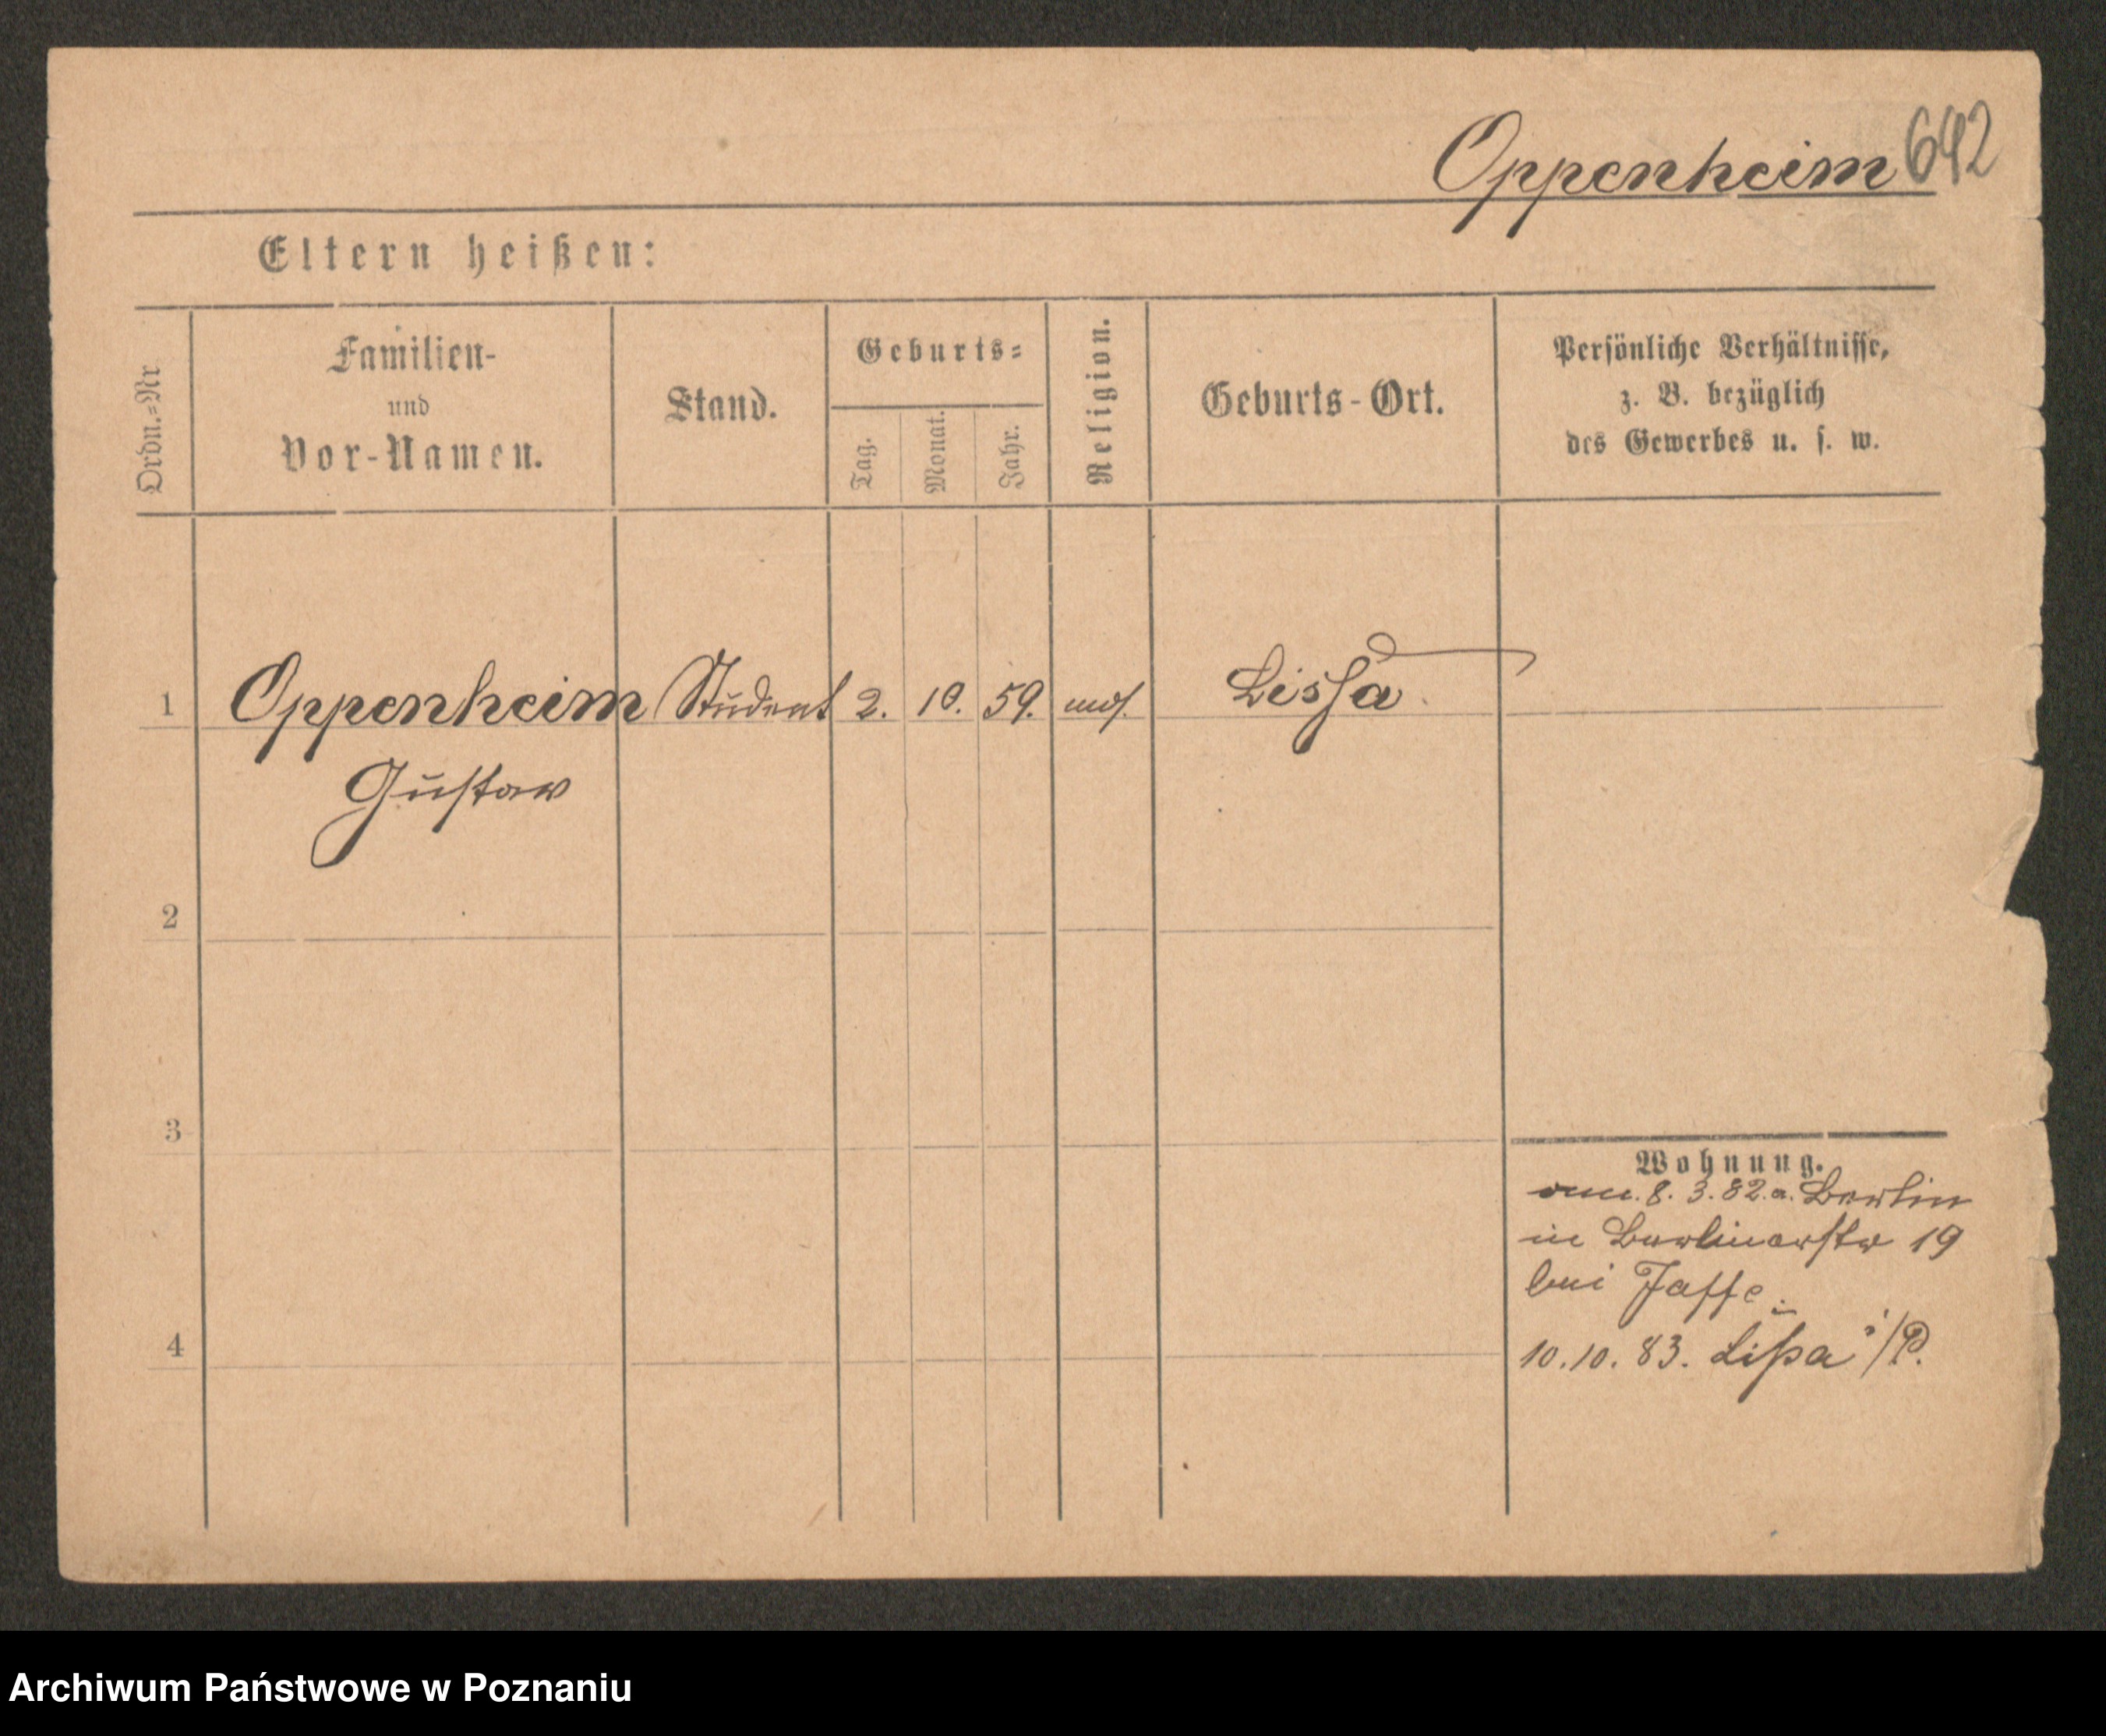 Oppenheim 642
Eltern heißen:
Ordn.=Nr
Familien-
und
Vor-Namen.
Stand.
Geburts=
Tag.
Monat.
Jahr.
Religion.
Geburts-Ort.
Persönliche Verhältnisse,
z. B. bezüglich
des Gewerbes u. s. w.
1 Oppenheim Student 2. 10. 59. mos. Lissa
Gustav
2
3
Wohnung.
8. 3. 82. a. Berlin
in Berlinerstr 19
bei Jaffe.
4
10. 10. 83. Lißa i/P.
Archiwum Państwowe w Poznaniu